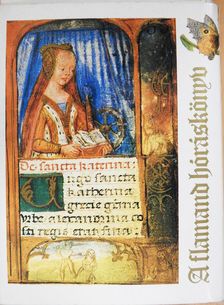 De sancta katerina:
Virgo sancta
katherina
grecie gema
vrbe alexandrina co
sti regis erat filia:
A flamand hóráskönyv